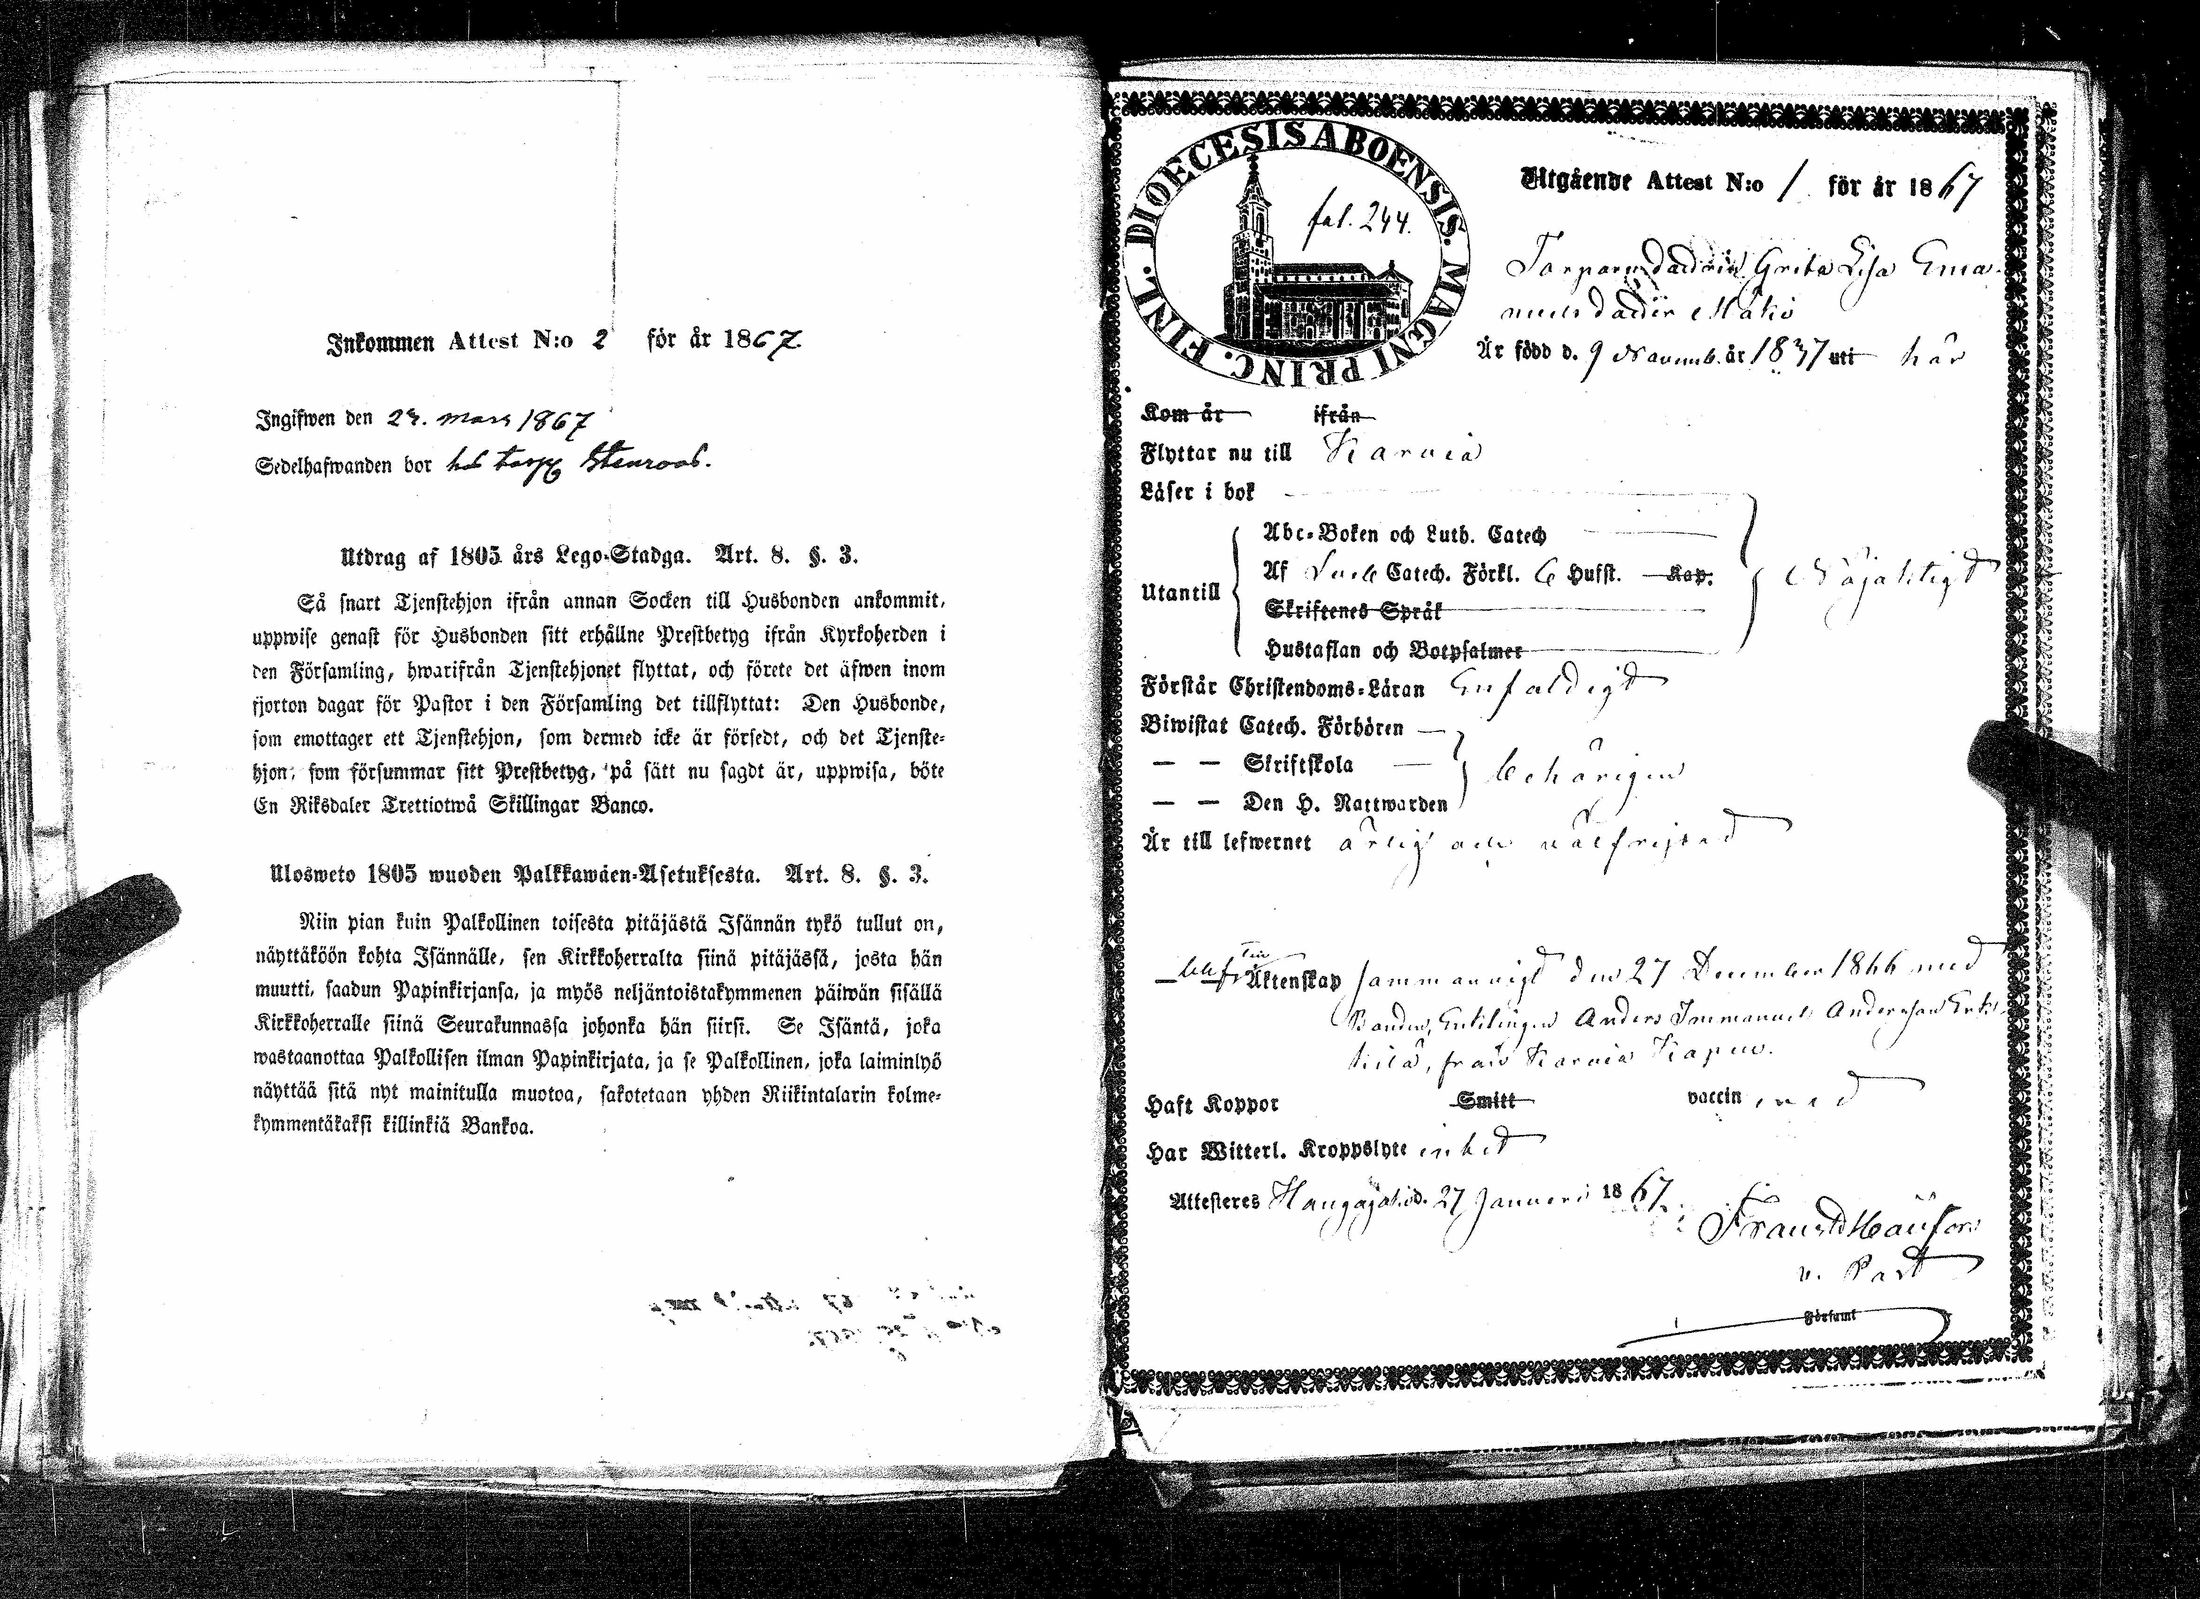 Inkommen Attest N:o 2 för år 1867
Ingifwen den 27. mars 1867
Sedelhafwanden bor hos torp Stenroos.
Utdrag af 1805 års Lego-Stadga. Art. 8. §. 3.
Så snart Tjenstehjon ifrån annan Socken till Husbonden ankommit,
uppwise genast för Husbonden sitt erhållne Prestbetyg ifrån Kyrkoherden i
den Församling, hwarifrån Tjenstehjonet flyttat, och förete det äfwen inom
fjorton dagar för Pastor i den Församling det tillflyttat: Den Husbonde,
som emottager ett Tjenstehjon, som dermed icke är försedt, och det Tjenste-
hjon, som försummar sitt Prestbetyg, på sätt nu sagdt är, uppwisa, böte
En Riksdaler Trettiotwå Skillingar Banco.
Ulosweto 1805 wuoden Palkkawäen-Asetuksesta. Art. 8. §. 3.
Niin pian kuin Palkollinen toisesta pitäjästä Isännän tykö tullut on,
näyttäköön kohta Isännälle, sen Kirkkoherralta siinä pitäjässä, josta hän
muutti, saadun Papinkirjansa, ja myös neljäntoistakymmenen päiwän sisällä
Kirkkoherralle siinä Seurakunnassa johonka hän siirsi. Se Isäntä, joka
wastaanottaa Palkollisen ilman Papinkirjata, ja se Palkollinen, joka laiminlyö
näyttää sitä nyt mainitulla muotoa, sakotetaan yhden Riikintalarin kolme-
kymmentäkaksi killinkiä Bankoa.
DIOECESIS ABOENSIS. MAGNI PRINC. FINL.
fol. 244.
Utgående Attest N:o 1 för år 1867
Torparedottren Greta Lisa Ema-
nuelsdotter Mäkiö
Är född d. 9 Novemb. år 1837 uti här
Kom år ifrån
Flyttar nu till Karvia
Läser i bok
Abc-Boken och Luth. Catech
Utantill
Af Catech. Förkl. 6 Hufst. Kap.
Skriftenes Språk
Hustaflan och Botpsalmer
Nöjaktigt
Förstår Christendoms-Läran Enfaldigt
Biwistat Catech. Förhören
— — Skriftskola
behörigen
— — Den H. Nattwarden
Är till lefwernet ärlig och välfrejdad
Till Äktenskap sammanvigd den 27 December 1866 med
Bonden, Enklingen Anders Immanuel Andersson
kilä, från Karvia Kapell.
Haft Koppor Smitt vaccin med
Har Witterl. Kroppslyte intet
Attesteres Hongojoki d. 27 Januari 1867.
v. Past
Församl